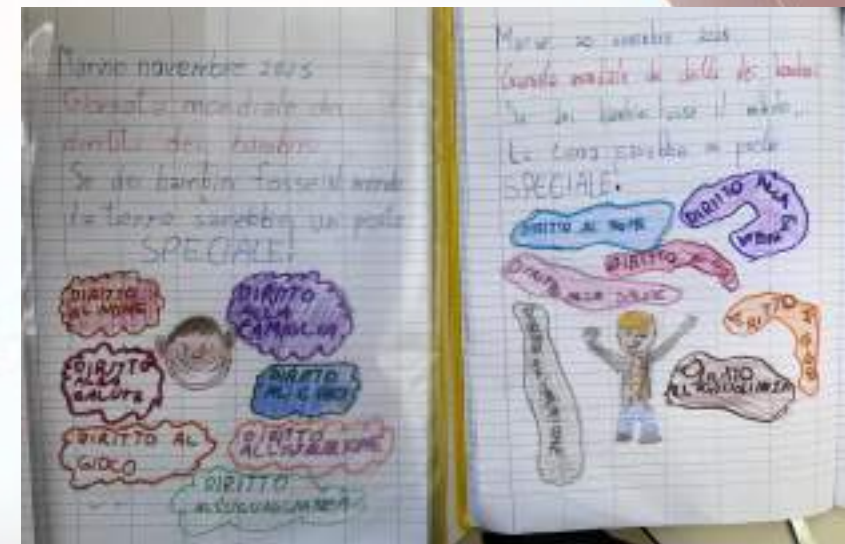 Marino novembre 2025
Giornata mondiale dei
diritti dei bambini
Se dei bambin fosse il mondo
la terra sarebbe un posto
SPECIALE!
DIRITTO
AL NOME
DIRITTO
ALLA
FAMIGLIA
DIRITTO
ALLA
SALUTE
DIRITTO
AL CIBO
DIRITTO AL
GIOCO
DIRITTO
ALL'ISTRUZIONE
DIRITTO
ALL'UGUAGLIANZA
Marino 20 novembre 2025
Giornata mondiale dei diritti dei bambini
Se dei bambini fosse il mondo...
La terra sarebbe un posto
SPECIALE!
DIRITTO AL NOME
DIRITTO ALLA
DIRITTO AL
DIRITTO ALLA SALUTE
DIRITTO
DIRITTO
ALL'UGUAGLIANZA